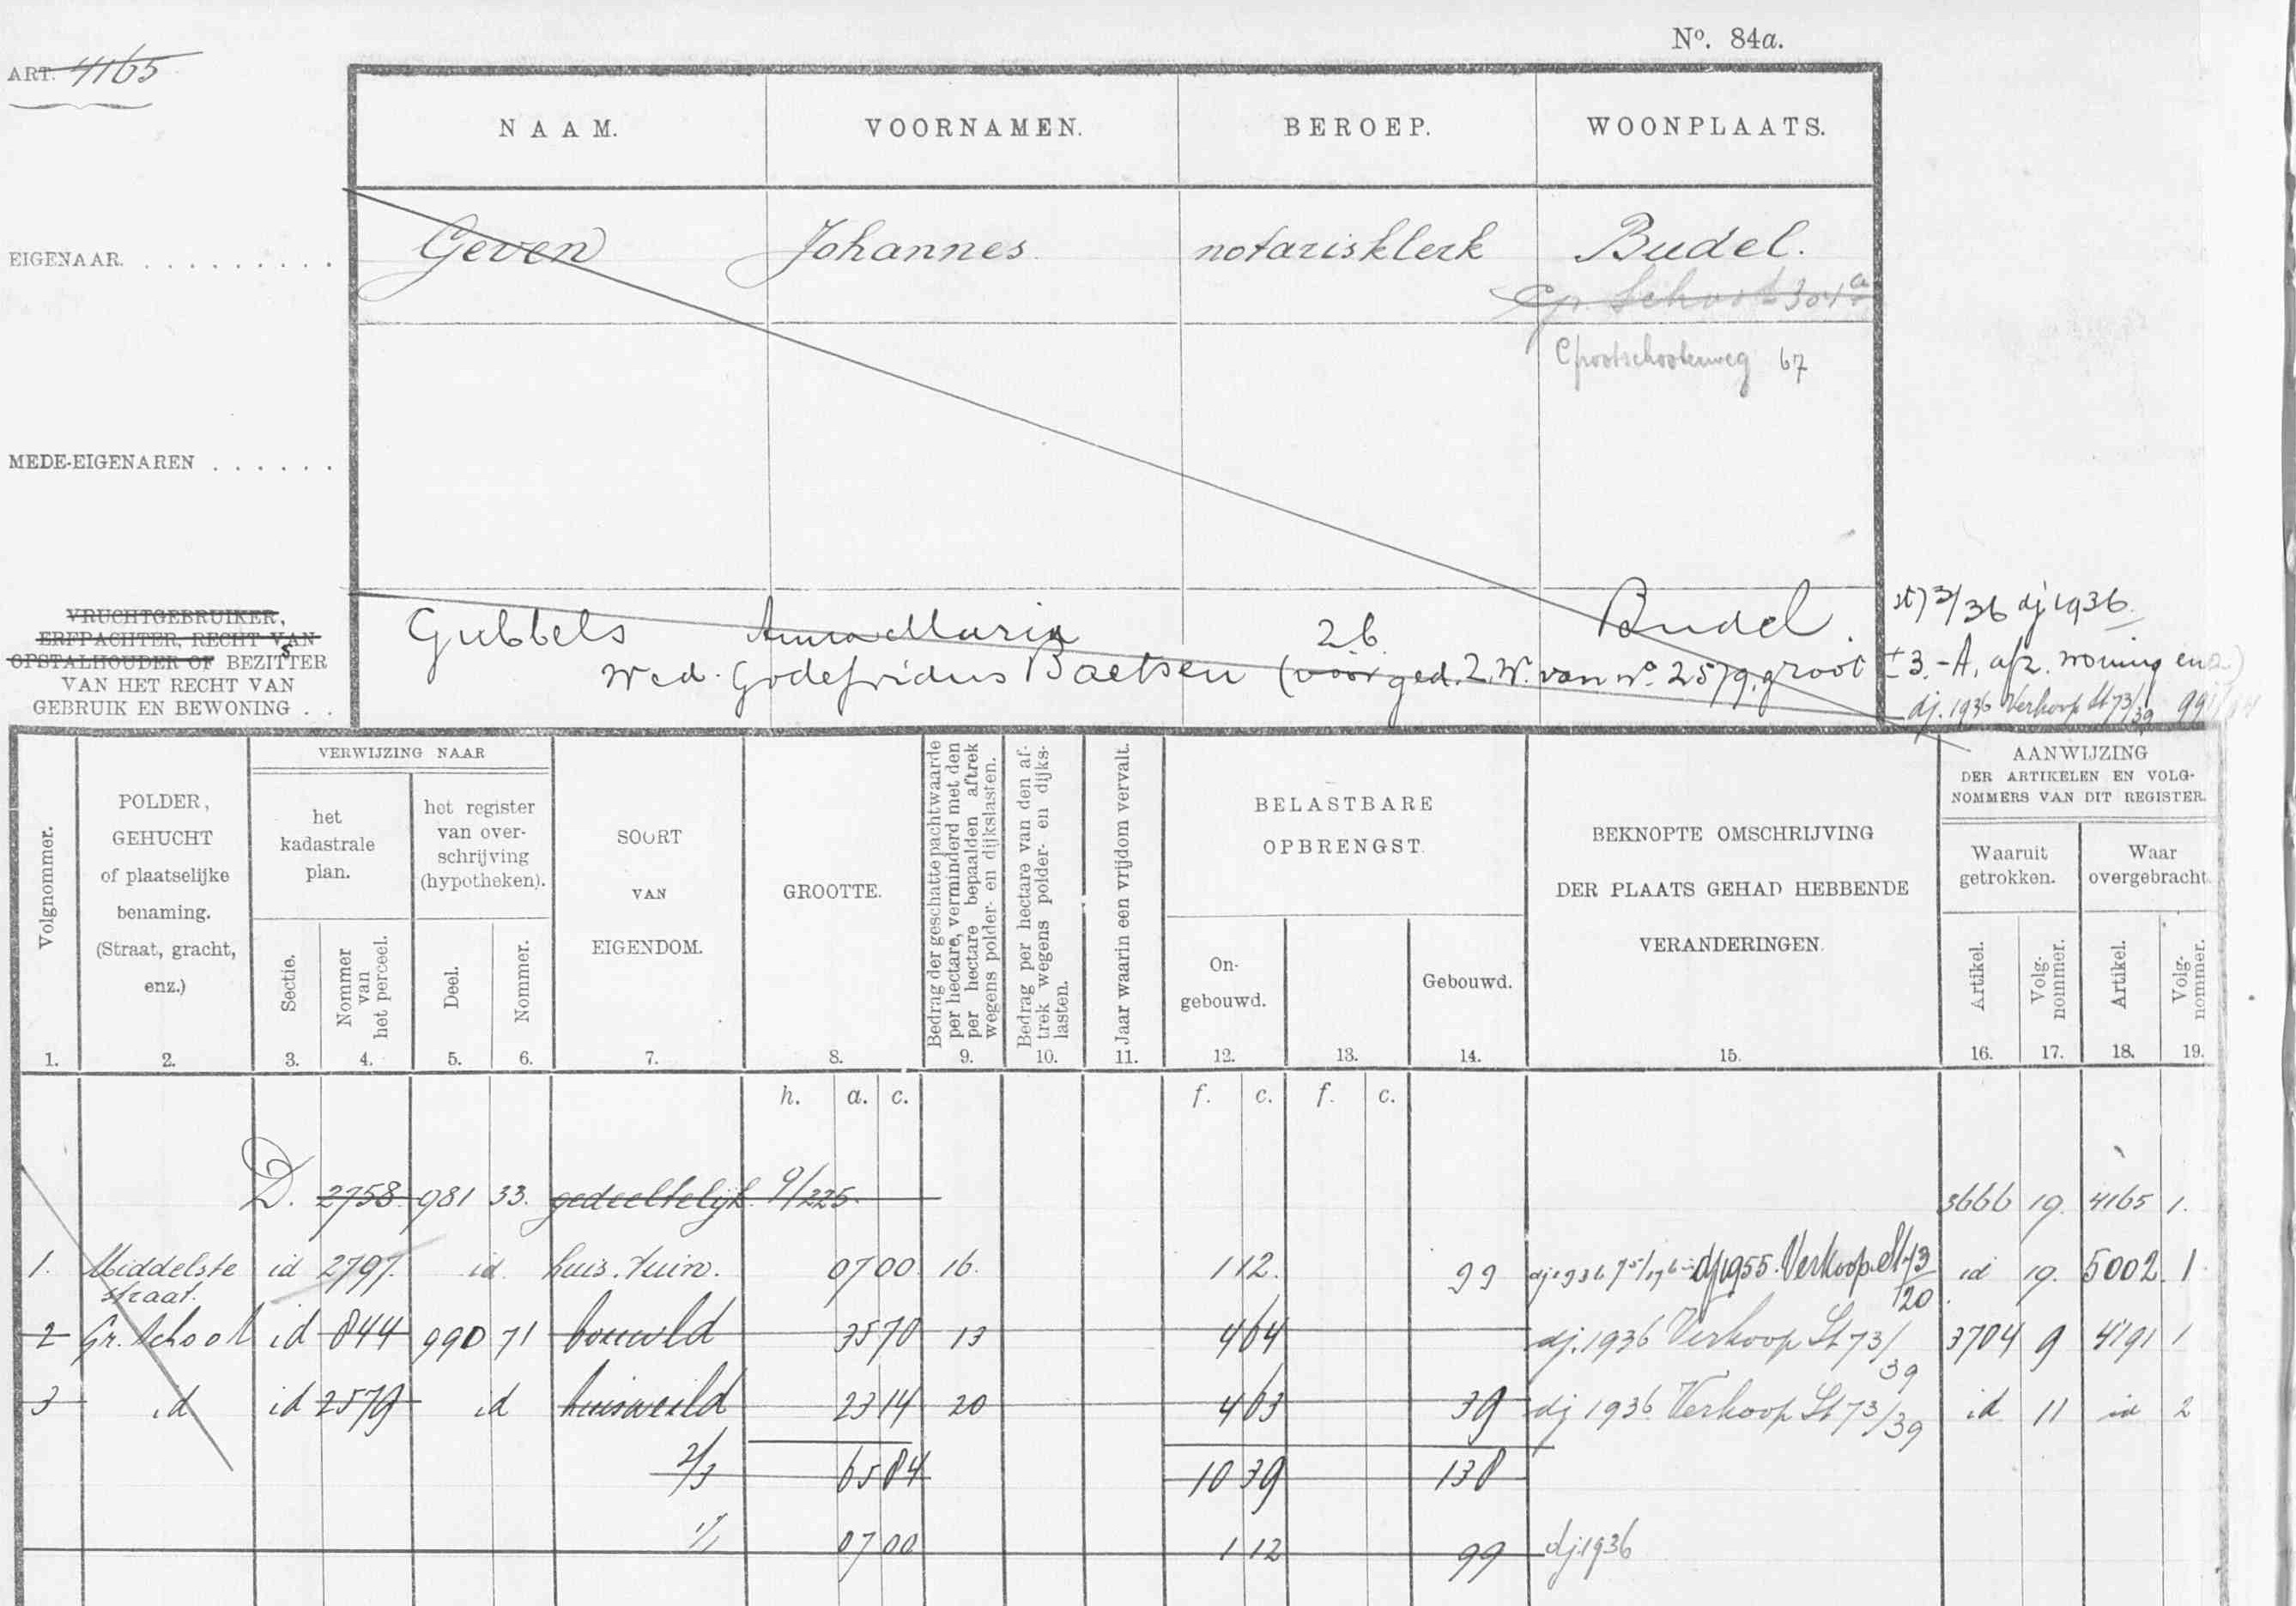 Nº. 84a.
ART. 4165
NAAM. VOORNAMEN. BEROEP. WOONPLAATS.
EIGENAAR. Geven Johannes notarisklerk Budel.
Gr. Schoot 301a
Grootschooterweg 67
MEDE-EIGENAREN
VRUCHTGEBRUIKER,
ERFPACHTER, RECHT VAN
OPSTALHOUDER OF BEZITTER
VAN HET RECHT VAN
GEBRUIK EN BEWONING
Gubbels Anna Maria z.b. Budel. 73/36 dj 1936
Wed. Godefridus Baetsen (voor ged. Z.W. van nº 2579, groot ± 3.-A, afz. woning enz.)
dj. 1936 Verkoop St 73/39 991/84
Volgnommer.
POLDER,
GEHUCHT
of plaatselijke
benaming.
(Straat, gracht,
enz.)
VERWIJZING NAAR
het
kadastrale
plan.
Sectie.
Nommer
van
het perceel.
het register
van over-
schrijving
(hypotheken).
Deel.
Nommer.
SOORT
VAN
EIGENDOM.
GROOTTE.
Bedrag der geschatte pachtwaarde
per hectare, verminderd met den
per hectare bepaalden aftrek
wegens polder- en dijkslasten.
Bedrag per hectare van den af-
trek wegens polder- en dijks-
lasten.
Jaar waarin een vrijdom vervalt.
BELASTBARE
OPBRENGST.
On-
gebouwd.
Gebouwd.
BEKNOPTE OMSCHRIJVING
DER PLAATS GEHAD HEBBENDE
VERANDERINGEN.
AANWIJZING
DER ARTIKELEN EN VOLG-
NOMMERS VAN DIT REGISTER.
Waaruit
getrokken.
Artikel.
Volg-
nommer.
Waar
overgebracht.
Artikel.
Volg-
nommer.
1. 2. 3. 4. 5. 6. 7. 8. 9. 10. 11. 12. 13. 14. 15. 16. 17. 18. 19.
h. a. c. f. c. f. c.
D. 2758 981 33. gedeeltelijk 9/225. 3666 19. 4165 1.
1. Middelste id 2797. id. huis. tuin. 07 00 16. 1 12. 99 dj 1955. Verkoop St 73 id 19. 5002. 1
straat. 120
2 Gr. Schoot id 844 990 71 bouwld 35 70 13 4 64 dj. 1936 Verkoop St 73/39 3704 9 4191 1
3 id id 2579 id huisweild 23 14 20 4 63 39 dj 1936 Verkoop St 73/39 id 11 id 2
2/3 65 84 10 39 138
1/1 07 00 1 12 99 dj. 1936